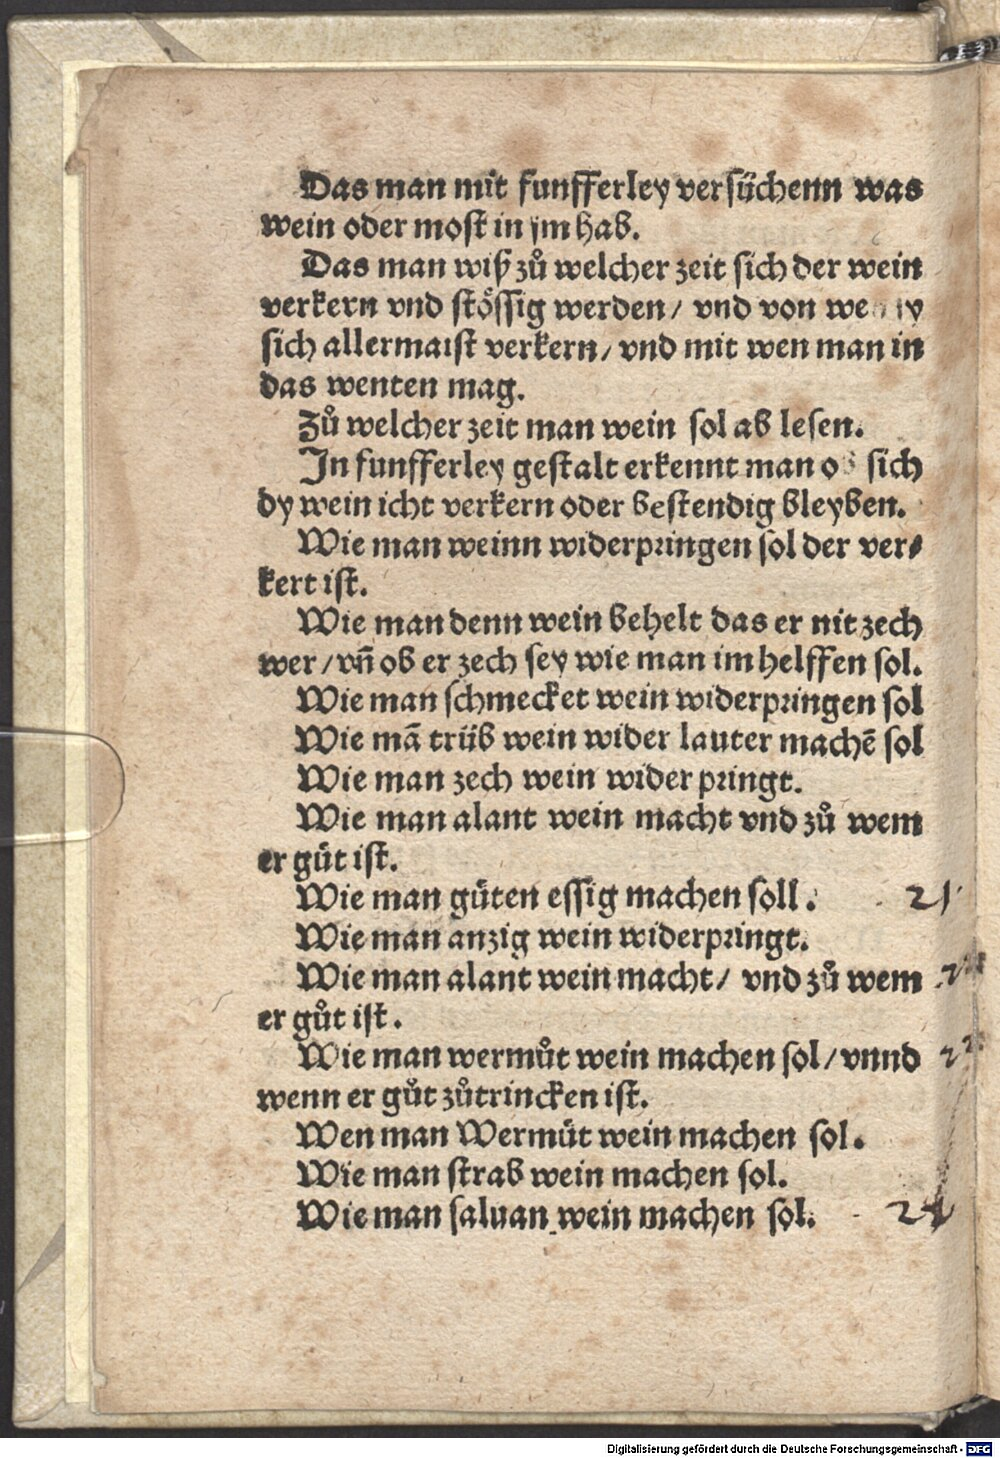 Das man mit funfferley versüchenn was
wein oder most in ym hab.
Das man wiß zů welcher zeit sich der wein
verkern vnd stössig werden/ vnd von we
sich allermaist verkern/ vnd mit wen man in
das wenten mag.
Zů welcher zeit man wein sol ab lesen.
In funfferley gestalt erkennt man ob sich
dy wein icht verkern oder bestendig bleyben.
Wie man weinn widerpringen sol der ver⸗
kert ist.
Wie man denn wein behelt das er nit zech
wer/ vn̄ ob er zech sey wie man im helffen sol.
Wie man schmecket wein widerpringen sol
Wie mā trüb wein wider lauter machē sol
Wie man zech wein wider pringt.
Wie man alant wein macht vnd zů wem
er güt ist.
Wie man güten essig machen soll. 21
Wie man anzig wein widerpringt.
Wie man alant wein macht/ vnd zů wem
er gůt ist.
Wie man wermůt wein machen sol/ vnnd
wenn er gůt zůtrincken ist.
Wen man Wermüt wein machen sol.
Wie man strab wein machen sol.
Wie man saluan wein machen sol. 24
Digitalisierung gefördert durch die Deutsche Forschungsgemeinschaft - DFG